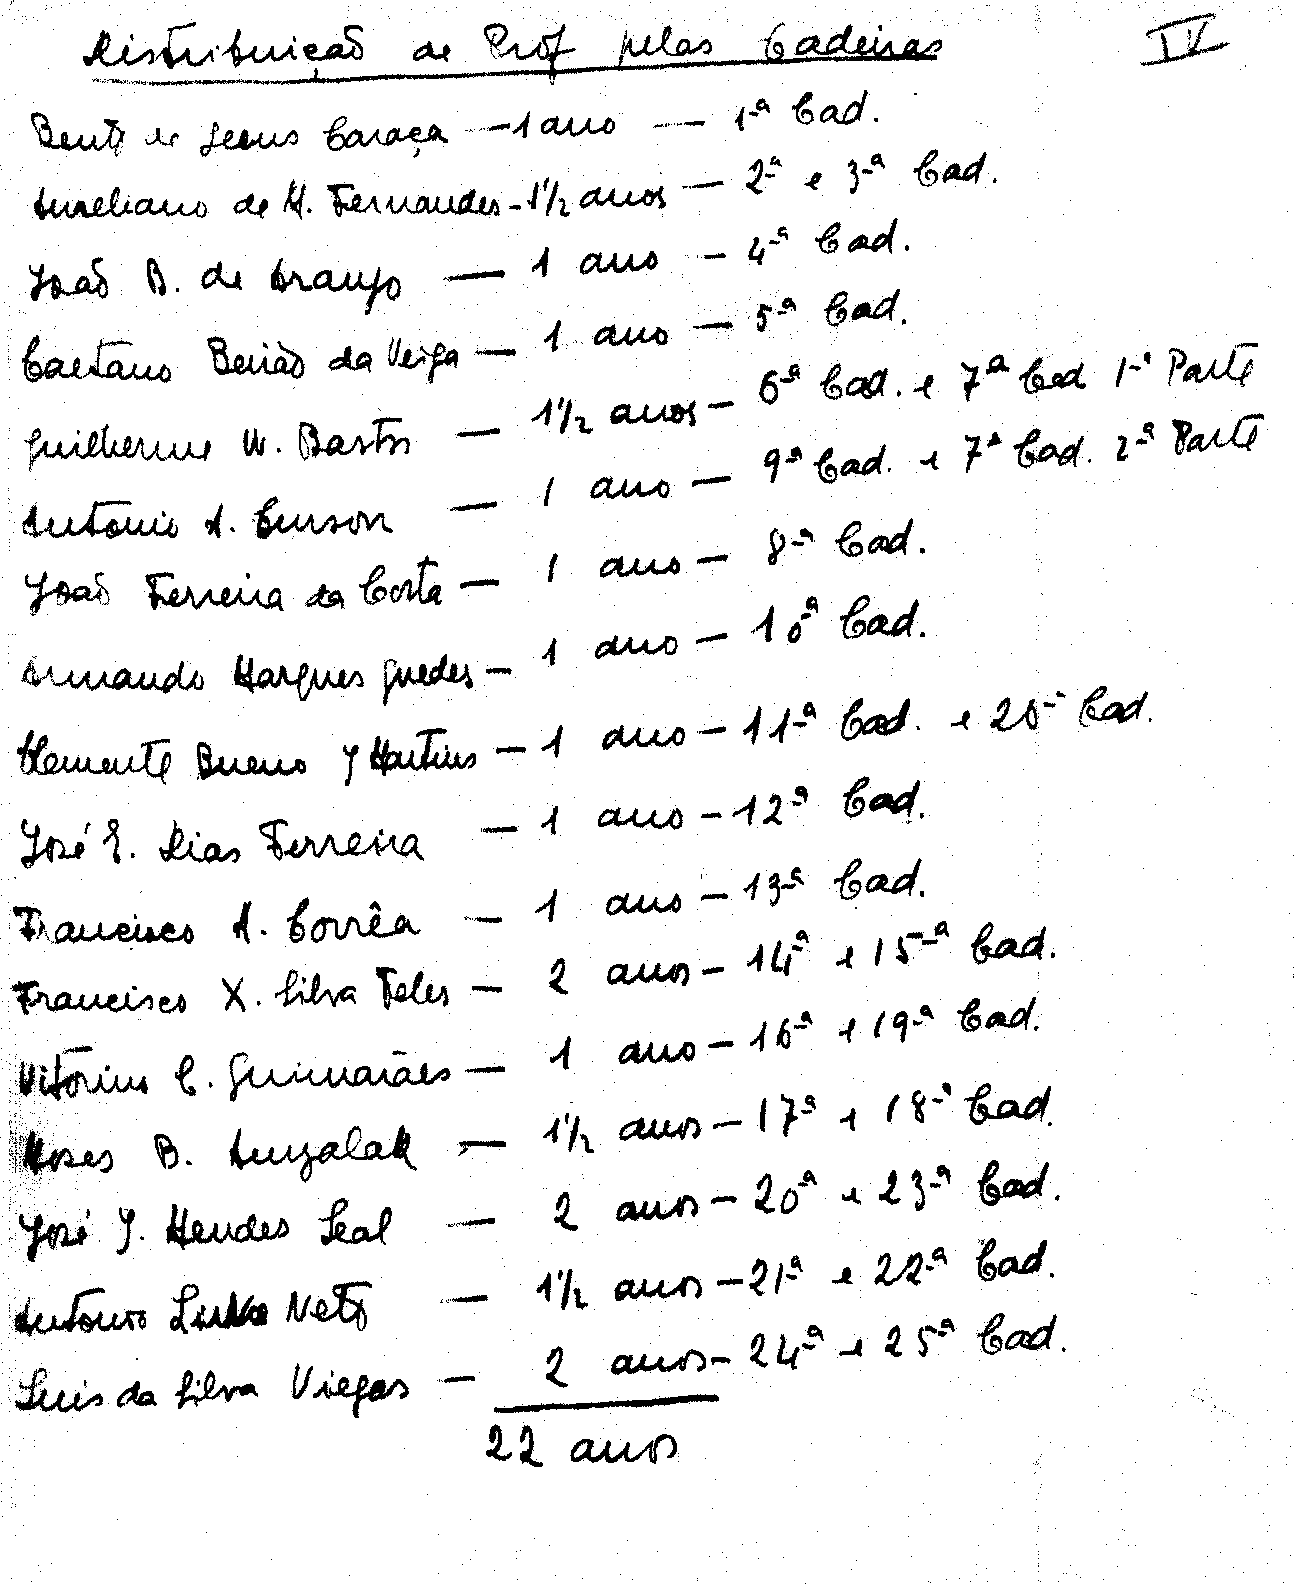 Distribuição de Prof pelas Cadeiras IV
Bento de Jesus Caraça — 1 ano — 1ª Cad.
Aureliano de M. Fernandes - 1½ anos — 2ª e 3ª Cad.
João B. de Araujo — 1 ano — 4ª Cad.
Caetano Beirão da Veiga — 1 ano — 5ª Cad.
Guilherme W. Bastos — 1½ anos — 6ª Cad. e 7ª Cad 1ª Parte
António A. Curson — 1 ano — 9ª Cad. e 7ª Cad. 2ª Parte
João Ferreira da Costa — 1 ano — 8ª Cad.
Armando Marques Guedes — 1 ano — 10ª Cad.
Clemente Bueno y Martins — 1 ano — 11ª Cad. e 20ª Cad.
José E. Dias Ferreira — 1 ano — 12ª Cad.
Francisco A. Corrêa — 1 ano — 13ª Cad.
Francisco X. Silva Teles — 2 anos — 14ª e 15ª Cad.
Vitorino C. Guimarães — 1 ano — 16ª e 19ª Cad.
Moses B. Amzalak — 1½ anos — 17ª e 18ª Cad.
José J. Mendes Leal — 2 anos — 20ª e 23ª Cad.
António Neto — 1½ anos — 21ª e 22ª Cad.
Luis da Silva Viegas — 2 anos — 24ª e 25ª Cad.
22 anos